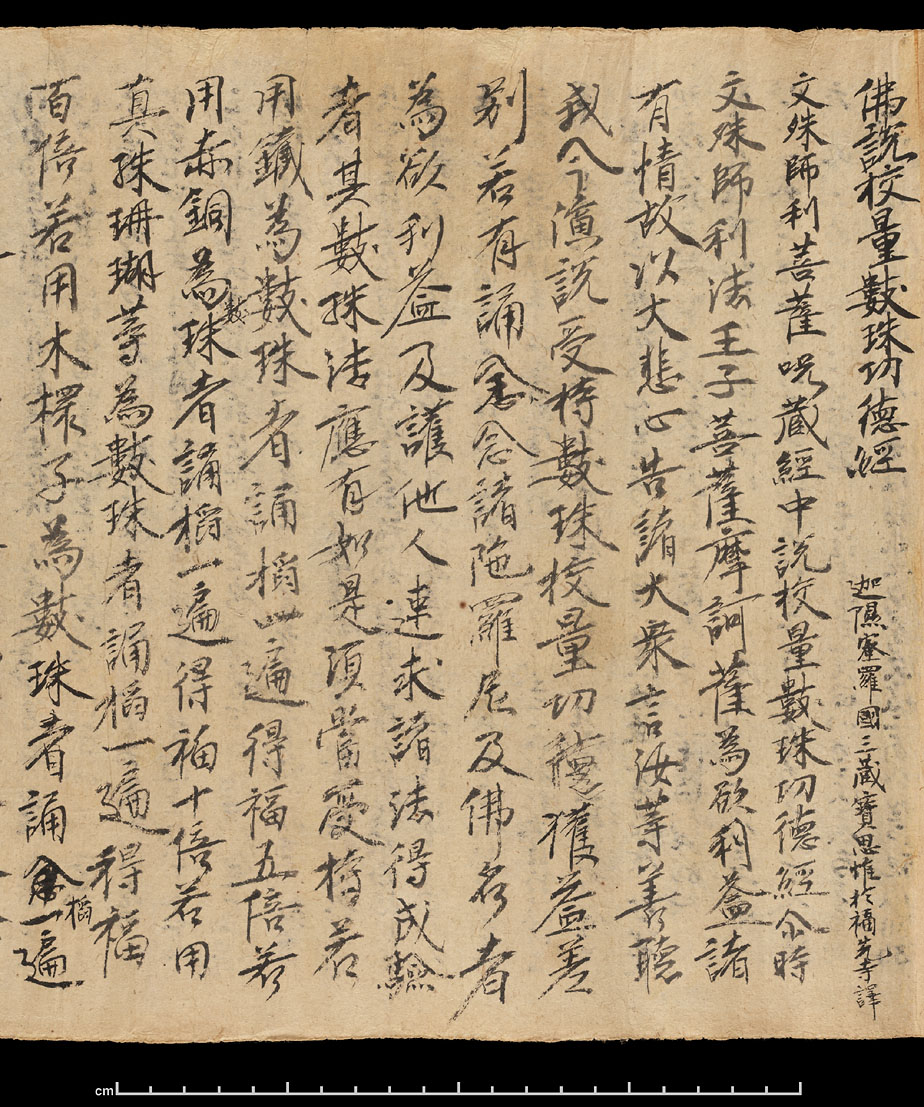 佛說校量數珠功德經
迦隰蜜羅國三藏寶思惟於福先寺譯
文殊師利菩薩呪藏經中說校量數珠功德經尒時
文殊師利法王子菩薩摩訶薩為欲利益諸
有情故以大悲心告諸大衆言汝等善聽
我今演說受持數珠校量功德獲益差
別若有誦念念諸陁羅尼及佛名者
為欲利益及護他人速求諸法得成驗
者其數珠法應有如是須當受持若
用鐵為數珠者誦搯一遍得福五倍若
用赤銅為數珠者誦搯一遍得福十倍若用
真珠珊瑚等為數珠者誦搯一遍得福
百倍若用木槵子為數珠者誦搯一遍
cm